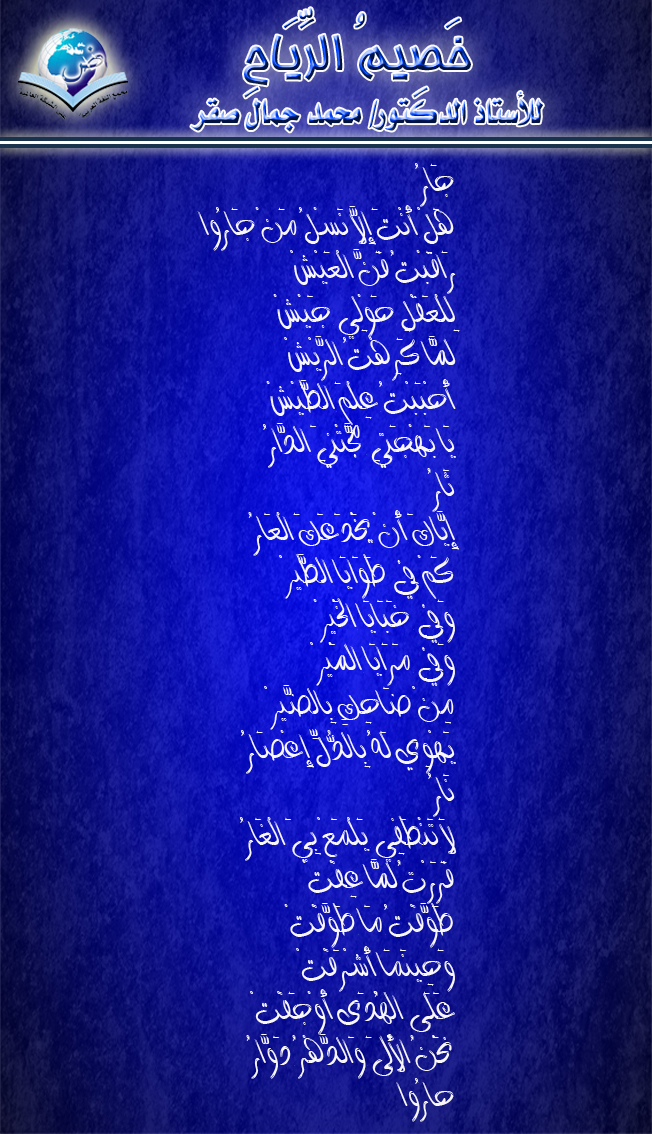 خَصِيمُ الرِّيَاحِ
للأستاذ الدكتور/ محمد جمال صقر
جَارُ
هَلْ أَنْتَ إِلاَّ نَسْلُ مَنْ جَارُوا
رَاقَبْتُ فَنَّ الْعَيْشْ
لِلْعَقْلِ حَوْلِي جَيْشْ
لَمَّا كَرِهْتُ الرَّيْشْ
أَحْبَبْتُ عِلْمَ الطَّيْشْ
يَا بَهْجَتِي مَجَّتْنِيَ الدَّارُ
ثَارُ
إِيَّاكَ أَنْ يَخْدَعَكَ الْعَارُ
كَمْ فِي طَوَايَا الطَّيْرْ
وَفِي خَبَايَا الْخَيْرْ
وَفِي مَرَايَا الْمَيْرْ
مِنْ ضَاحِكٍ بِالضَّيْرْ
يَهْوِي لَهُ بِالذُّلِّ إِعْصَارُ
نَارُ
لاَ تَنْطَفِي يَلْمَعْ بِيَ الْغَارُ
قَرَرْتُ لَمَّا عِفْتْ
طَوَّفْتُ مَا طَوَّفْتْ
وَحِينَمَا أَشْرَفْتْ
عَلَى الْهُدَى أَوْجَفْتْ
نَحْنُ الأُلَى وَالدَّهْرُ دَوَّارُ
حارُوا